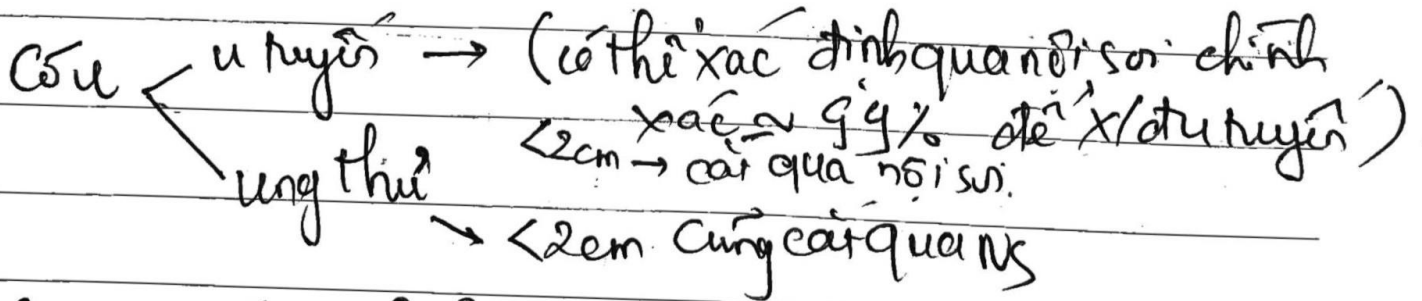 Có u
u tuyến → (có thể xác định qua nội soi chính
xác ~ 99% để x/đ u tuyến)
<2cm → cắt qua nội soi.
ung thư
↘ <2cm. Cũng cắt qua NS